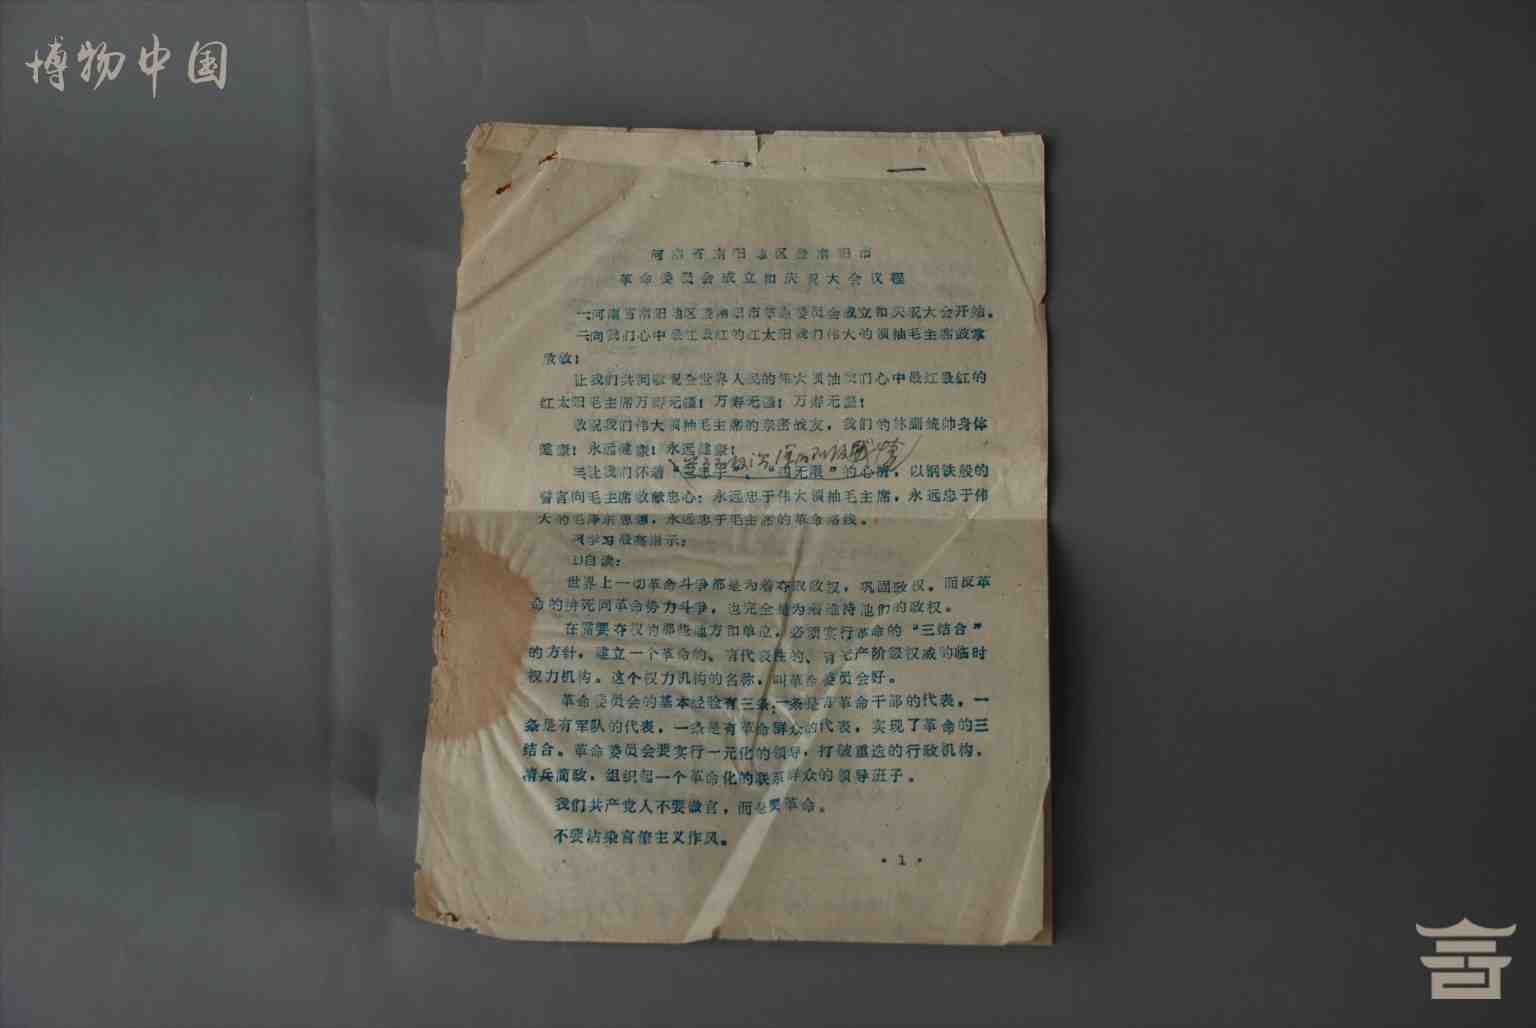 博物中国
河南省南阳地区暨南阳市
革命委员会成立和庆祝大会议程
一、河南省南阳地区暨南阳市革命委员会成立和庆祝大会开始。
二、向我们心中最红最红的红太阳我们伟大的领袖毛主席致崇
敬：
让我们共同敬祝全世界人民的伟大领袖我们心中最红最红的
红太阳毛主席万寿无疆！万寿无疆！万寿无疆！
敬祝我们伟大领袖毛主席的亲密战友，我们的林副统帅身体
健康！永远健康！永远健康！
三、让我们怀着“ 无限”的心情，以钢铁般的
誓言向毛主席敬献忠心：永远忠于伟大领袖毛主席，永远忠于伟
大的毛泽东思想，永远忠于毛主席的革命路线。
学习最高指示：
1)自读：
世界上一切革命斗争都是为着夺取政权，巩固政权。而反革
命的拚死同革命势力斗争，也完全是为着维持他们的政权。
在需要夺权的那些地方和单位，必须实行革命的“三结合”
的方针，建立一个革命的、有代表性的、有无产阶级权威的临时
权力机构。这个权力机构的名称，叫革命委员会好。
革命委员会的基本经验有三条：一条是有革命干部的代表，一
条是有军队的代表，一条是有革命群众的代表，实现了革命的三
结合。革命委员会要实行一元化的领导，打破重迭的行政机构，
精兵简政，组织起一个革命化的联系群众的领导班子。
我们共产党人不要做官，而是要革命。
不要沾染官僚主义作风。
• 1 •